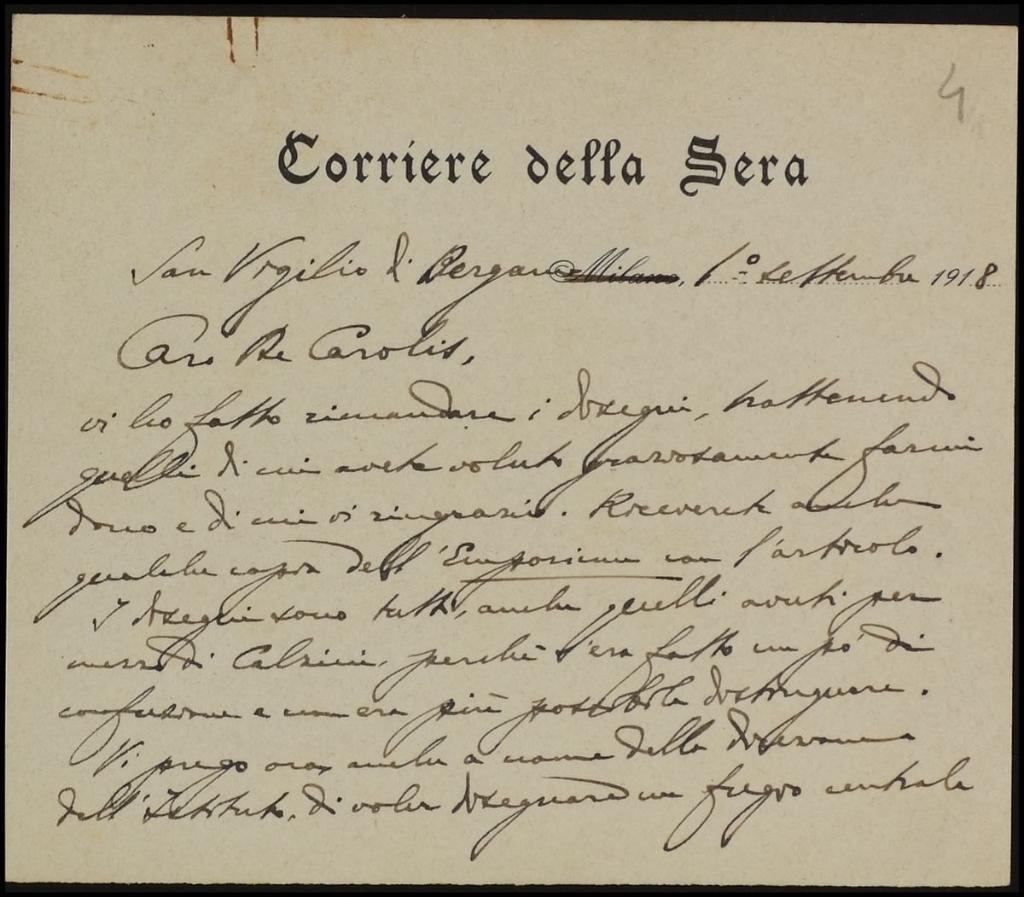 4
Corriere della Sera
San Vigilio di Bergamo Milano, 1° settembre 1918
Caro De Carolis,
vi ho fatto rimandare i disegni, trattenendo
quelli di cui avete voluto graziosamente farmi
dono e di cui vi ringrazio. Riceverete anche
qualche copia dell'Emporium con l'articolo.
I disegni sono tutti, anche quelli avuti per
mezzo di Calzini, perchè s'era fatto un po' di
confusione e non era più possibile distinguere.
Vi prego ora, anche a nome della direzione
dell'Istituto, di voler disegnare un fregio centrale